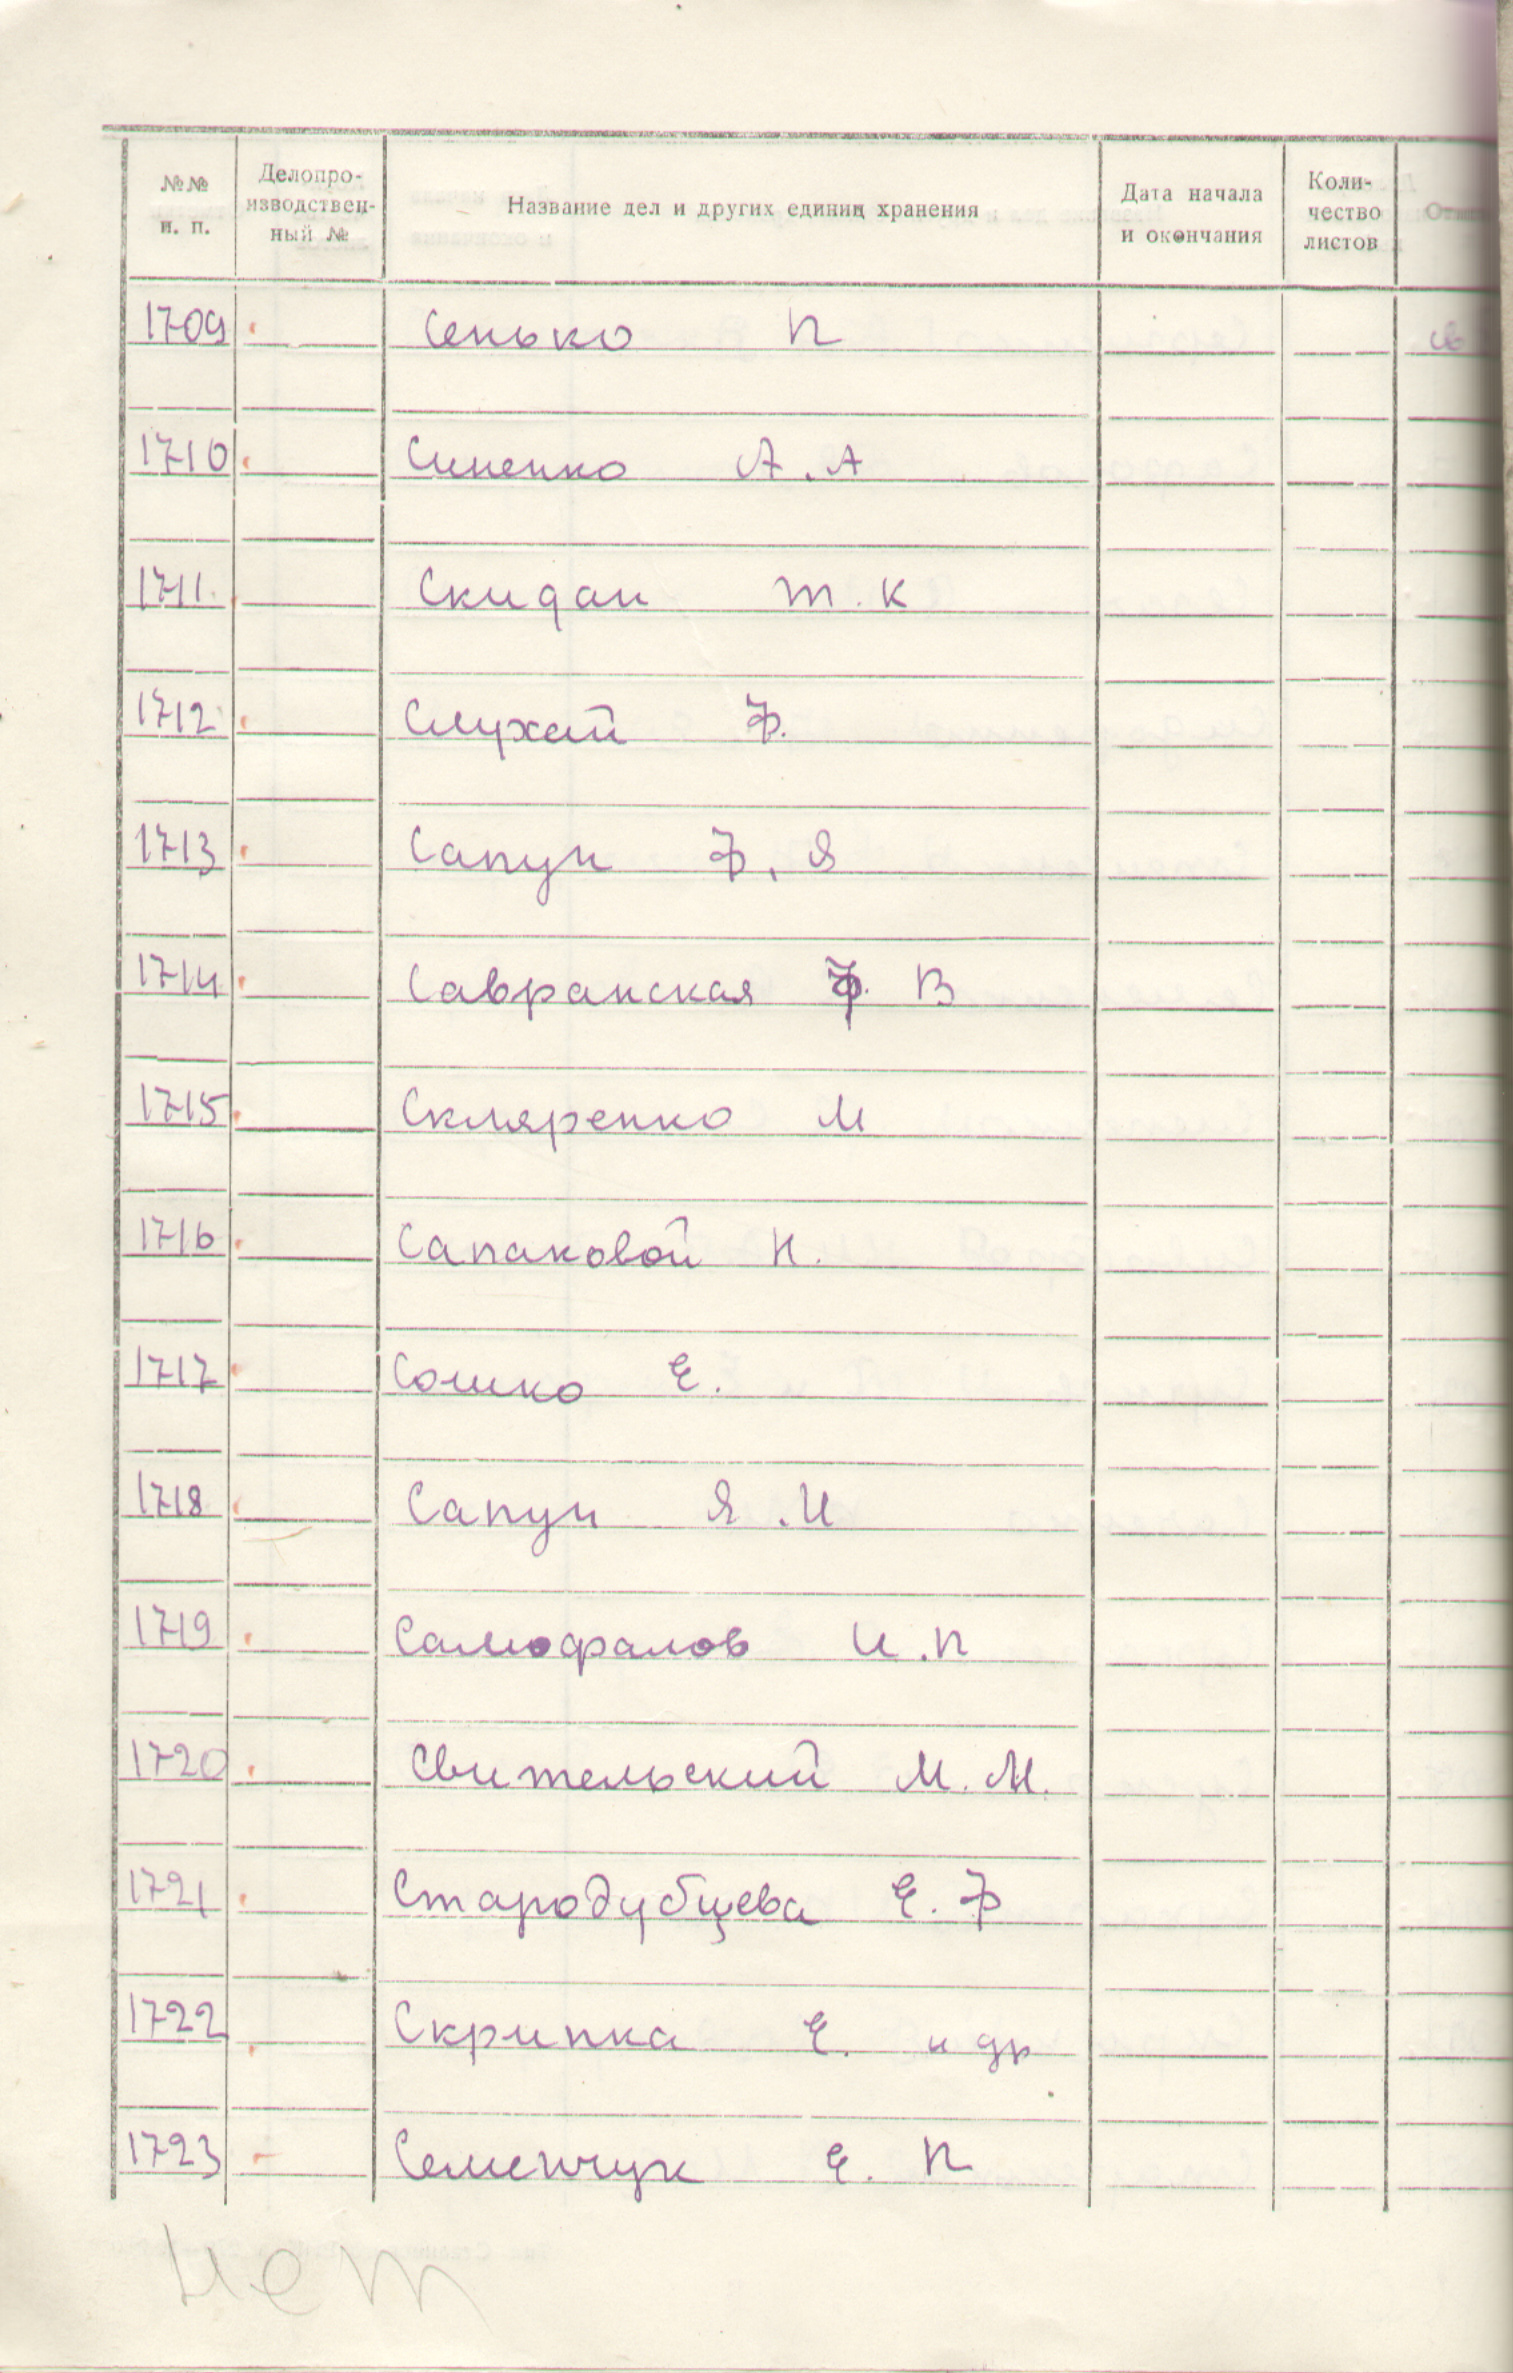 №№ п. п. Делопро-изводствен-ный № Название дел и других единиц хранения Дата начала и окончания Коли-чество листов
1709 Сенько П
1710 Синенко А.А
1711 Скидан Т.К
1712 Слухай Ф.
1713 Сапун Ф.Я
1714 Савранская Ф. В
1715 Скляренко М
1716 Сапаковой Н.
1717 Сошко Е.
1718 Сапун Я.И
1719 Самофалов И.П
1720 Свительский М.М.
1721 Стародубцева Е.Ф
1722 Скрипка Е. и др
1723 Семенчук Е. П
нет